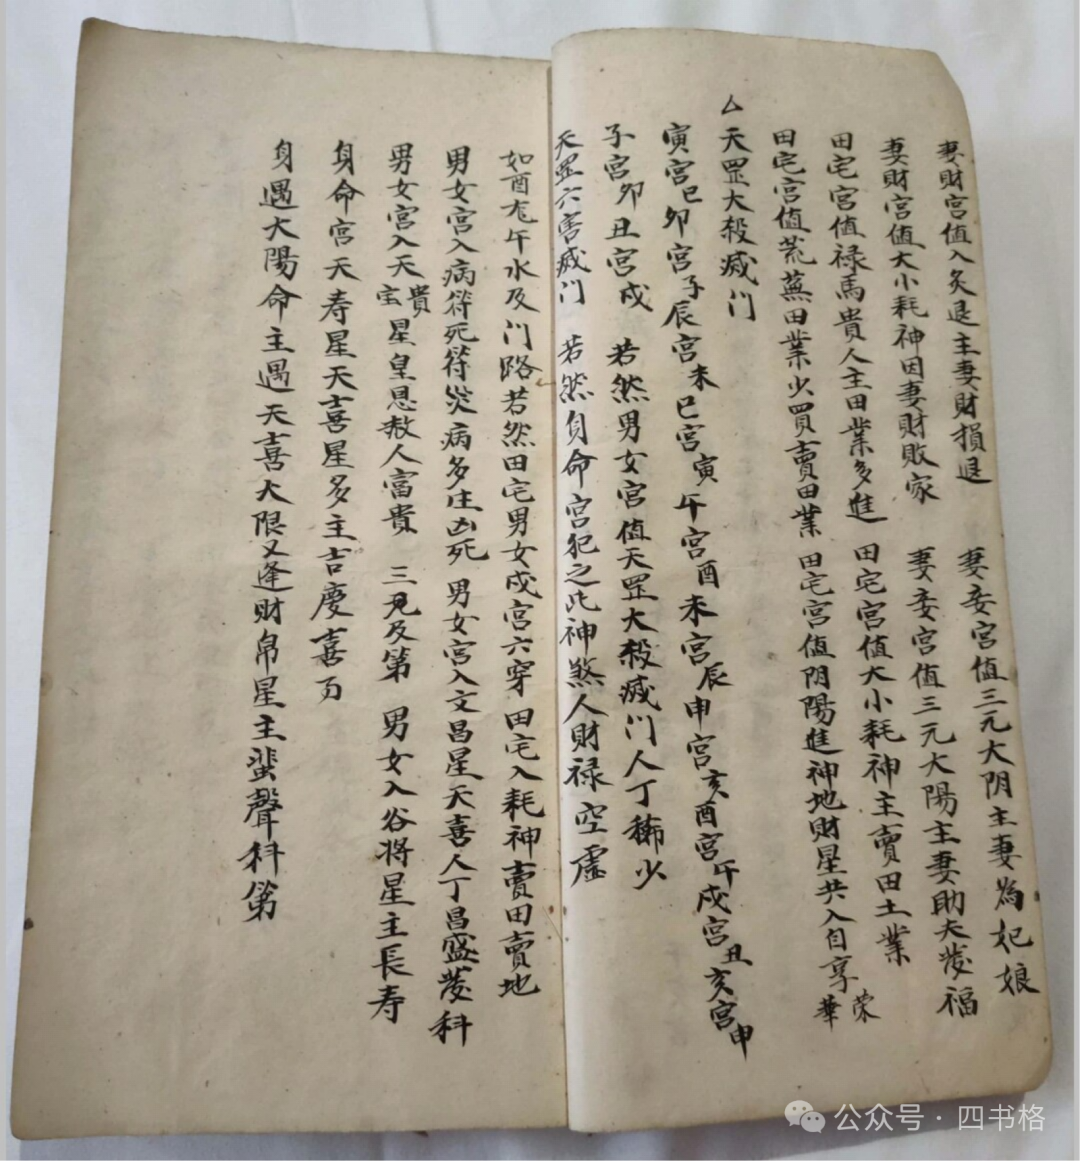 妻財宮值入炙退主妻財損退　妻妾宮值三元大阴主妻為妃娘
妻財宮值大小耗神因妻財敗家　妻妾宮值三元大陽主妻助夫發福
田宅宮值禄馬貴人主田業多進　田宅宮值大小耗神主賣田土業
田宅宮值荒蕪田業少買賣田業　田宅宮值阴陽進神地財星共入自享榮華
△天罡大殺滅门
寅宮巳卯宮子辰宮未巳宮寅午宮酉未宮辰申宮亥酉宮午戌宮丑亥宮申
子宮卯丑宮戌　若然男女宮值天罡大殺滅门人丁稀少
天罡六害滅门　若然身命宮犯之此神煞人財禄空虛
如酉午水及门路若然田宅男女戌宮六穿　田宅入耗神賣田賣地
男女宮入病符死符災病多凶死　男女宮入文昌星天喜人丁昌盛發科
男女宮入天貴宝星皇恩赦人富貴　三見及第　男女入谷将星主長寿
身命宮天寿星天喜星多主吉慶喜
身遇大陽命主遇天喜大限又逢財帛星主蜚聲科第
公众号·四书格